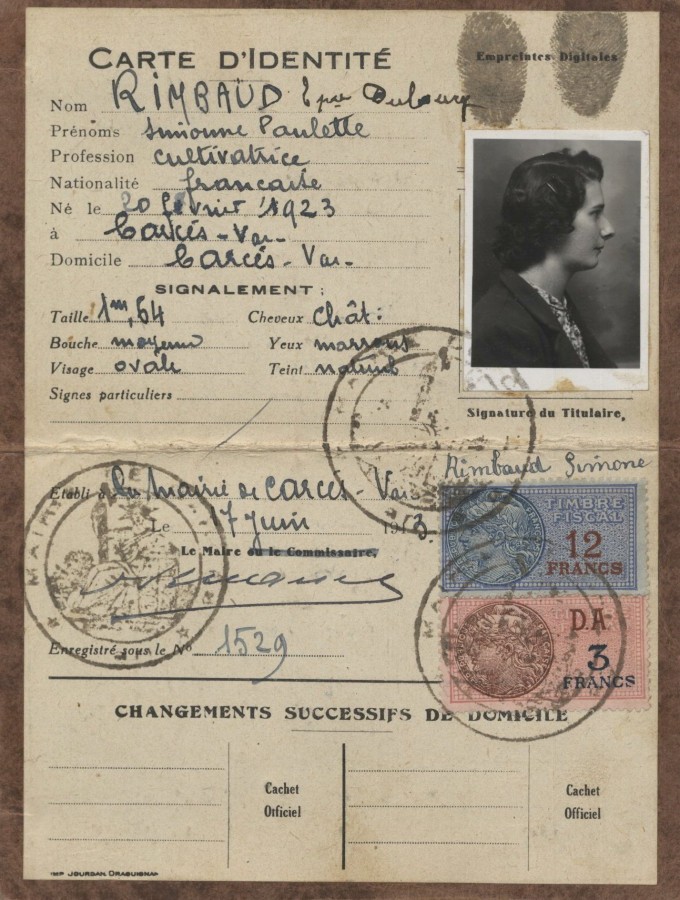 Empreintes Digitales
CARTE D'IDENTITÉ
Nom RIMBAUD
Prénoms Simonne Paulette
Profession cultivatrice
Nationalité francaise
Né le 20 février 1923
à Carcés - Var -
Domicile Carcés - Var -
SIGNALEMENT :
Taille 1m,64 Cheveux chât:
Bouche moyenne Yeux marrons
Visage ovale Teint naturel
Signes particuliers
Signature du Titulaire,
Rimbaud Simone
Etabli à la Mairie de Carcés - Var
Le 17 Juin 1943.
Le Maire ou le Commissaire,
Enregistré sous le No 1529
TIMBRE
FISCAL
12
FRANCS
D.A.
3
FRANCS
CHANGEMENTS SUCCESSIFS DE DOMICILE
Cachet
Officiel
Cachet
Officiel
IMP JOURDAN. DRAGUIGNAN